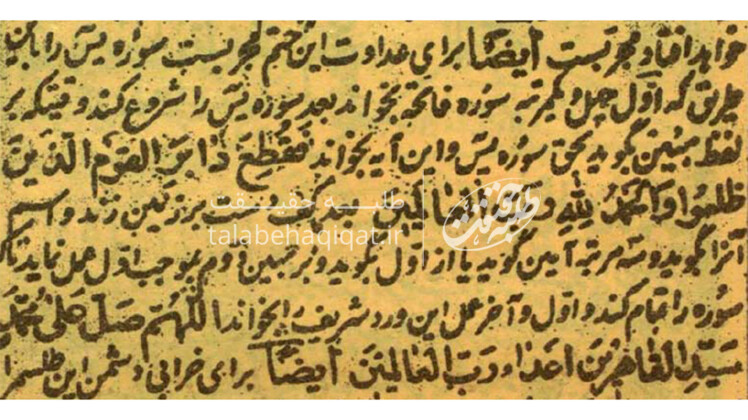 خواهد افتاد مجربست ایضاً برای عداوت این ختم مجربست سوره یس را باین
طریق که اوّل چهل و یکمرتبه سوره فاتحه بخواند بعد سوره یس را شروع کند وقتیکه بر
لفظ مبین بگوید بحق سوره یس و این آیه بخواند فَقُطِعَ دَابِرُ القَومِ الَّذِینَ
ظَلَمُوا وَالحَمدُ لِلّهِ رب العالمین بر زمین زند و اسم
آنرا بگوید و سه مرتبه آمین گوید یا از اول بگوید و بر مبین دوم بموجب اول عمل نماید تا
سوره را تمام کند و اول و آخر عمل این ورد شریف را بخواند اللّهُمَّ صَلِّ عَلیٰ مُحَمَّدٍ
سَیِّدِ القَاهِرِینَ اَعدَاءِ رَبِّ العَالَمِینَ ایضاً برای خرابی دشمن این طلسم را
طلبه حقیقت
talabehaqiqat.ir